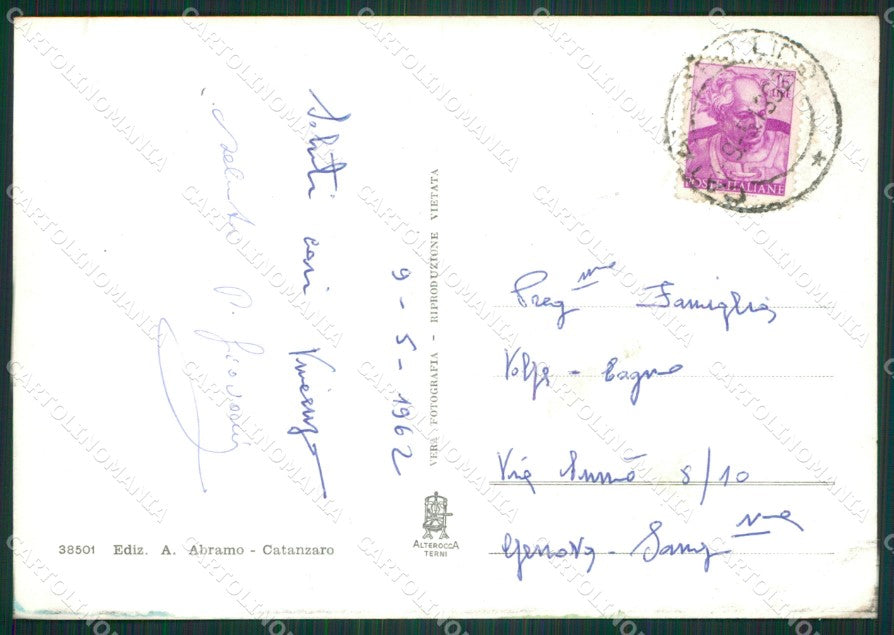 Saluti cari Vincenzo
9-5-1962
Saluti P. Giovanni
VERA FOTOGRAFIA - RIPRODUZIONE VIETATA
POSTE ITALIANE
Preg.me Famiglia
Volpe - Cagno
Via 8/10
Genova -
ALTEROCCA
TERNI
38501 Ediz. A. Abramo - Catanzaro
CARTOLINOMANIA